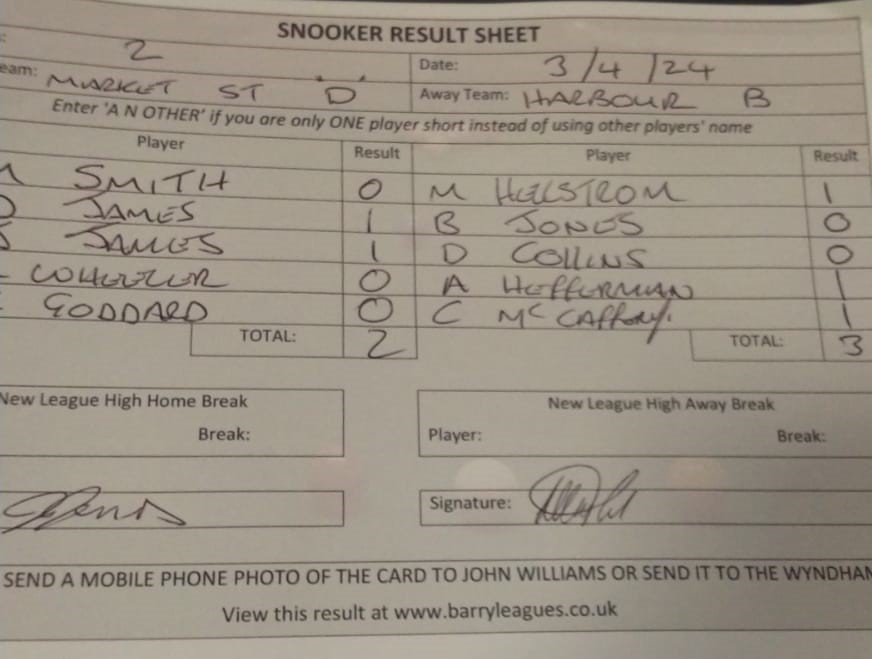 SNOOKER RESULT SHEET
: 2 Date: 3/4/24
eam: MARKET ST D Away Team: HARBOUR B
Enter 'A N OTHER' if you are only ONE player short instead of using other players' name
Player Result Player Result
SMITH 0 M HELLSTROM 1
JAMES 1 B JONES 0
JAMES 1 D COLLINS 0
WHEELER 0 A HEFFERMAN 1
GODDARD 0 C McCAFFORY 1
TOTAL: 2 TOTAL: 3
New League High Home Break New League High Away Break
Break: Player: Break:
Signature:
SEND A MOBILE PHONE PHOTO OF THE CARD TO JOHN WILLIAMS OR SEND IT TO THE WYNDHAM
View this result at www.barryleagues.co.uk